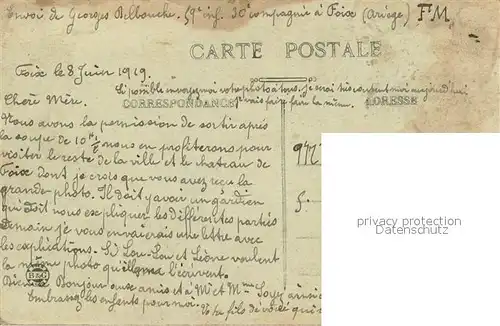 Envoi de Georges Delbouche. 59e inf. 30e compagnie à Foix (Ariège) FM
CARTE POSTALE
Foix le 8 Juin 1919.
Si possible envoyez moi votre photo à tous, je serai très content moi aujourd'hui
Chère Mère.
je vais faire faire la même.
CORRESPONDANCE
ADRESSE
Nous avons la permission de sortir après
la soupe de 10H½ nous en profiterons pour
visiter le reste de la ville et le chateau de
Foix dont je crois que vous avez reçu la
grande photo. Il doit y avoir un gardien
qui doit nous expliquer les différentes parties
demain je vous enverrais une lettre avec
les explications. Si Lou-Lou et Léone veulent
la même photo qu'ils m'écrivent.
B&G
Bonjour aux amis et à Mr et Mme Soyez ainsi
Embrassez les enfants pour moi.
Votre fils dévoué qui
privacy protection
Datenschutz